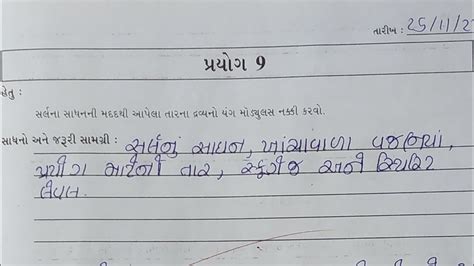 તારીખ : 25/11/2
પ્રયોગ 9
હેતુ :
સર્લના સાધનની મદદથી આપેલા તારના દ્રવ્યનો યંગ મૉડ્યુલસ નક્કી કરવો.
સાધનો અને જરૂરી સામગ્રી : સર્લનું સાધન, ખાંચાવાળા વજનિયાં,
પ્રયોગ માટેનો તાર, સ્ક્રૂગેજ અને સ્પિરિટ
લેવલ.